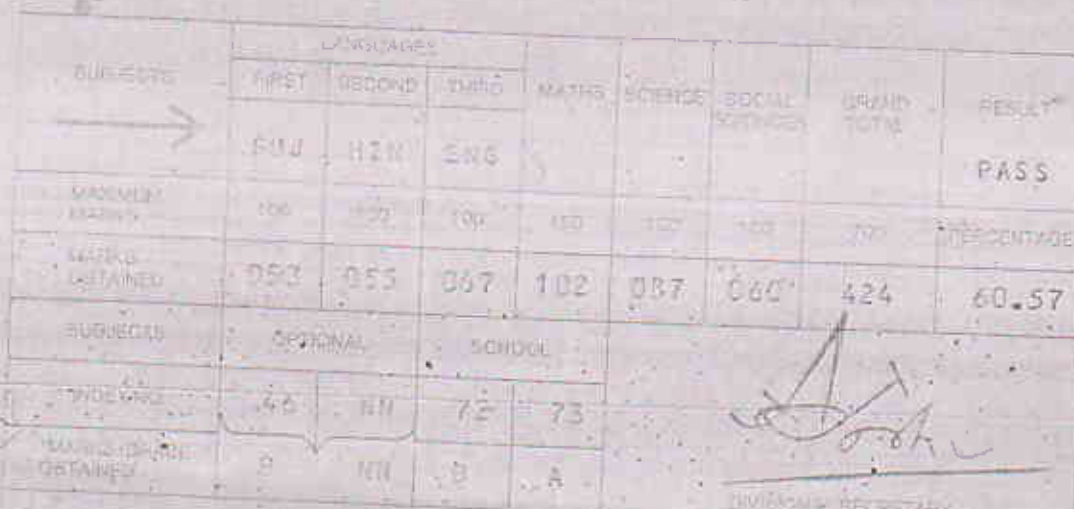 LANGUAGES
SUBJECTS FIRST SECOND THIRD MATHS SCIENCE SOCIAL SCIENCES GRAND TOTAL RESULT
GUJ HIN ENG PASS
MAXIMUM MARKS 100 100 100 150 150 100 700 PERCENTAGE
MARKS OBTAINED 053 055 067 102 087 060 424 60.57
SUBJECTS OPTIONAL SCHOOL
INDEX NO. 46 NN 72 73
OBTAINED B NN B A
DIVISIONAL SECRETARY